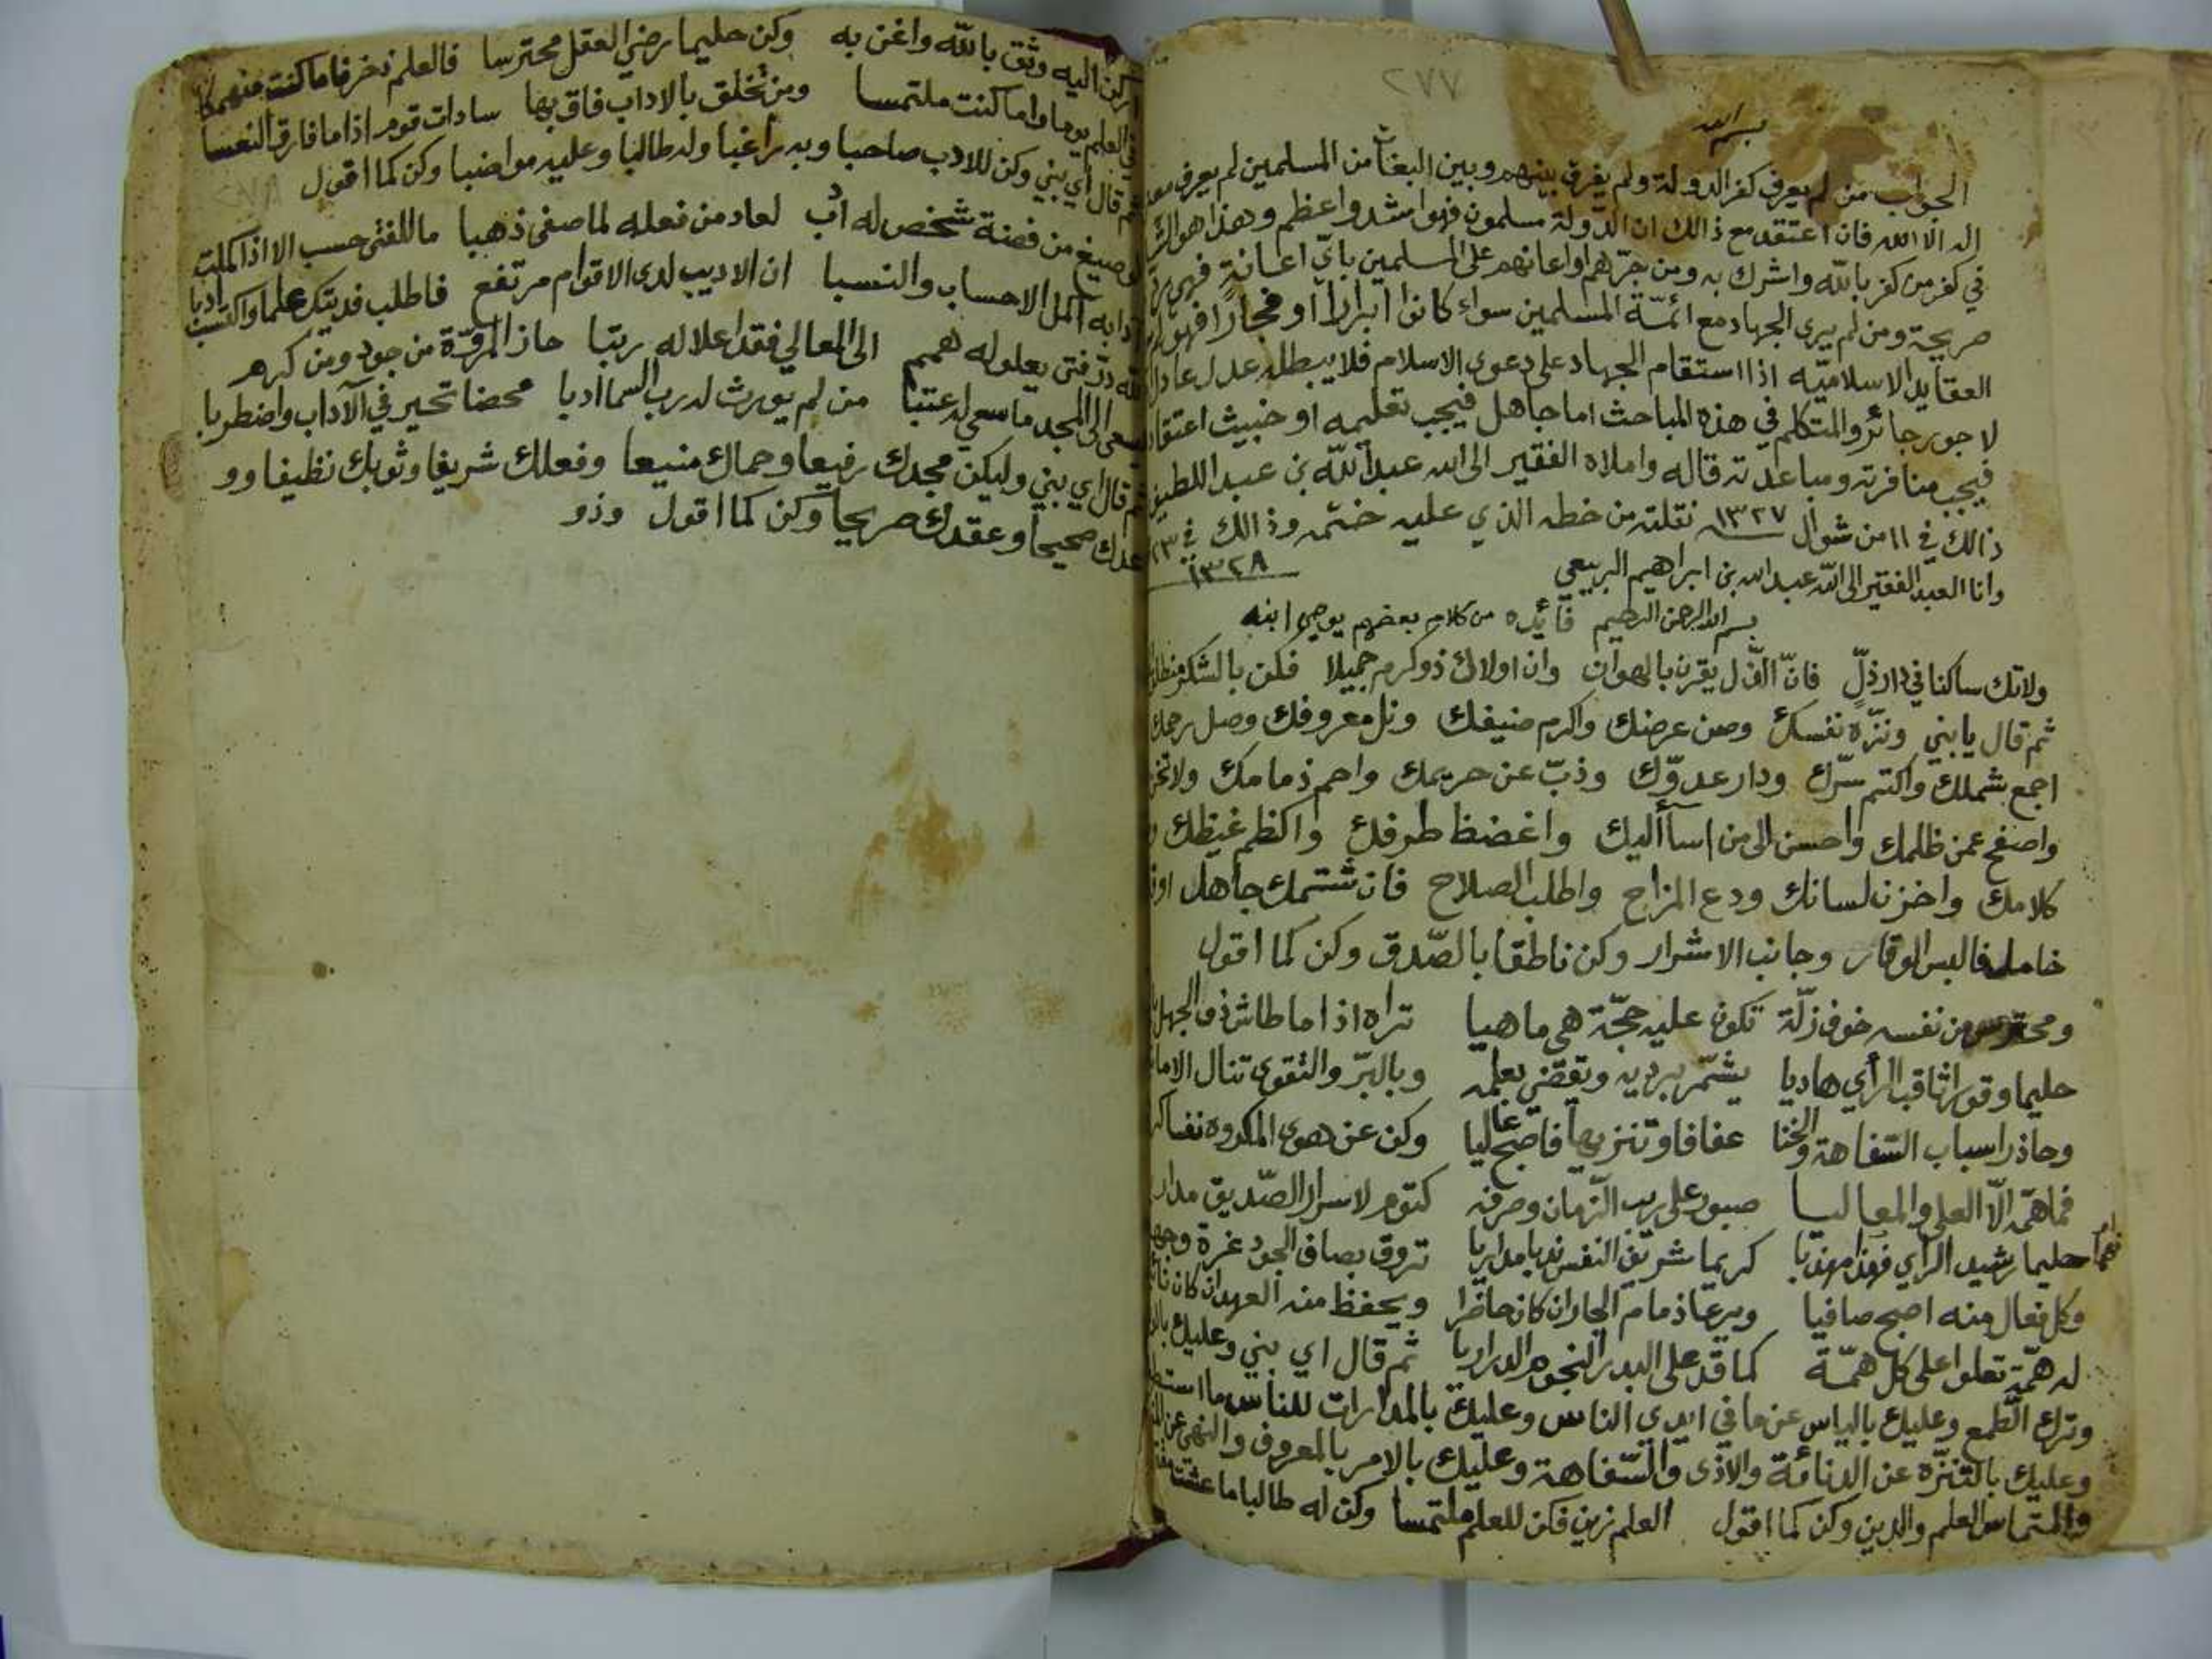 ٢٧٧
بسم الله
الجواب من لم يعرف كفر الدولة ولم يفرق بينهم وبين البغات من المسلمين لم يعرف معنى
اله الا الله فان اعتقد مع ذالك ان الدولة مسلمون فهو اشد واعظم وهذا هو الشك
في كفر من كفر بالله واشرك به ومن جرّهم او اعانهم على المسلمين بايّ اعانة فهي ردة
صريحة ومن لم يرى الجهاد مع ائمّة المسلمين سواء كانوا ابرارا او فجارا فهو لم
العقايد الاسلاميّه اذا استقام الجهاد على دعوى الاسلام فلا يبطله عدل عادل
لا جور جائر والمتكلم في هذه المباحث اما جاهل فيجب تعليمه او خبيث اعتقاد
فيجب منافرته ومباعدته قاله واملاه الفقير الى الله عبد الله بن عبد اللطيف
ذالك في ١١ من شوال ١٣٢٧ نقلته من خطه الذي عليه ختمه وذالك في ٢٣
١٣٢٨
وانا العبد الفقير الى الله عبد الله بن ابراهيم الربيعي
بسم الله الرحمن الرحيم فائده من كلام بعضهم يوصي ابنه
ولاتك ساكنا في دار ذلّ فانّ الذّل يقرن بالهوان وان اولاك ذو كرم جميلا فكن بالشكر منطلق
ثم قال يا بني ونزّه نفسك وصن عرضك واكرم ضيفك ونل معروفك وصل رحمك
اجمع شملك واكتم سرّك ودار عدوّك وذبّ عن حريمك واحم ذمامك ولا تخن
واصفح عمن ظلمك واحسن الى من اسآ اليك واغضض طرفك واكظم غيظك
كلامك واخزن لسانك ودع المزاح واطلب الصلاح فان شتمك جاهل او
خامل فالبس الوقار وجانب الاشرار وكن ناطقا بالصّدق وكن كما اقول
ومحترس من نفسه خوف زلّة تكون عليه حجّة هي ماهيا تراه اذا ما طاش ذو الجهل
حليما وقورا ثاقب الرأي هاديا يشمّر برديه وتقضى بعلمه وبالبرّ والتقوى تنال الاما
وحاذر اسباب السّفاهة والخنا عفافا وتنزيها فاصبح عاليا وكن عن هوى المكروه نفسا
فما همّه الّا العلى والمعاليا صبور على ريب الزّمان وصرفه كتوم لاسرار الصّديق مدار
حليما رشيد الراي فهذا مهذبا كريما شريف النفس ندبا مداريا تروق بصافي الجود غرة وجهه
وكل فعال منه اصبح صافيا ويرعا ذمام الجار ان كان حاضرا ويحفظ منه العهد ان كان
له همّة تعلوا على كل همّة كما قد على البدر النجوم الدراريا ثم قال اي بني وعليك
وترك الطمع وعليك بالياس عن ما في ايدي الناس وعليك بالمدارات للناس ما
وعليك بالتنزّه عن الدنائة والاذى والسّفاهة وعليك بالامر بالمعروف والنهي عن
والتماس العلم والدين وكن كما اقول العلم زين فكن للعلم ملتمسا وكن له طالبا ما عشت
اركن اليه وثق بالله واغن به وكن حليما رضي العقل محترسا فالعلم ذخر فاما كنت منهمكا
في العلم يوما واما كنت ملتمسا ومن تخلق بالاداب فاق بها سادات قوم اذا ما فارق النعسا
ثم قال اي بني وكن للادب صاحبا وبه راغبا وله طالبا وعليه مواضبا وكن كما اقول
لو صيغ من فضة شخص له ادب لعاد من فعله لما صفى ذهبا ما للفتى حسب الا اذا كملت
ادابه اكمل الاحساب والنسبا ان الاديب لدى الاقوام مرتفع فاطلب فديتك علما واكتسب ادبا
لله درّ فتى يعلو له همم الى المعالي فقد اعلا له رتبا حاز المروّة من جود ومن كرم
يسعى الى المجد ما سعى له عتبا من لم يورث له رب السما ادبا محضا تحير في الآداب واضطربا
ثم قال اي بني وليكن مجدك رفيعا وحماك منيعا وفعلك شريفا وثوبك نظيفا وو
عدك صحيحا وعقدك صريحا وكن كما اقول وذو